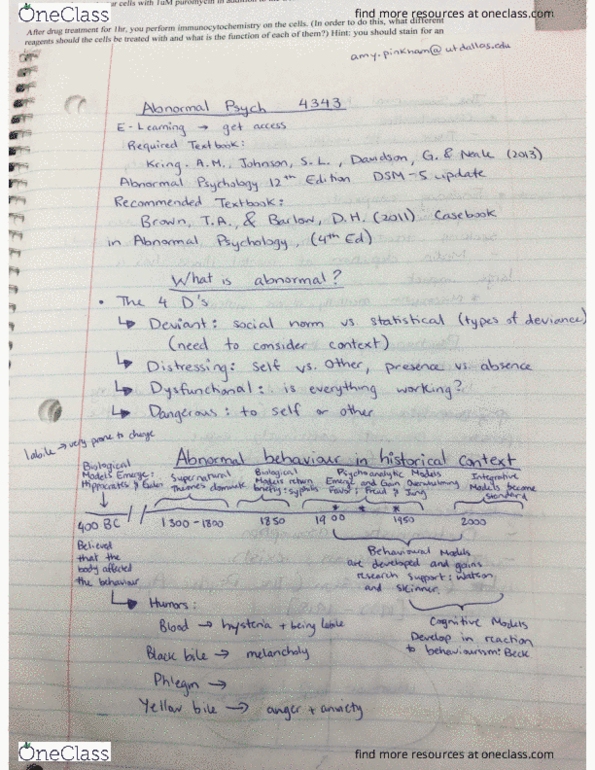 OneClass
find more resources at oneclass.com
cells with 1uM puromycin in addition
After drug treatment for 1hr, you perform immunocytochemistry on the cells. (In order to do this, what different
reagents should the cells be treated with and what is the function of each of them?) Hint: you should stain for an
amy.pinkham@utdallas.edu
Abnormal Psych 4343
E-Learning → get access
Required Textbook:
Kring. A.M., Johnson, S.L., Davidson, G. & Neale (2013)
Abnormal Psychology 12th Edition DSM-5 update
Recommended Textbook:
Brown, T.A., & Barlow, D.H. (2011) Casebook
in Abnormal Psychology, (4th Ed)
What is abnormal?
• The 4 D's
↳ Deviant: social norm vs. statistical (types of deviance)
(need to consider context)
↳ Distressing: self vs. other, presence vs. absence
↳ Dysfunctional: is everything working?
↳ Dangerous: to self or other
labile → very prone to change
Abnormal behaviour in historical context
Biological
Models Emerge:
Hippocrates &
Supernatural
Themes dominate
Biological
Models return
briefly: syphilis
Psychoanalytic Models
Emerge and Gain Overwhelming
Favor: Freud & Jung
Integrative
Models become
standard
400 BC
1300-1800
1850
1900
1950
2000
Believed
that the
body affected
the behaviour
Behavioural Models
are developed and gains
research support: Watson
and Skinner
↳ Humors:
Blood → hysteria + being labile
Black bile → melancholy
Phlegm →
Yellow bile → anger + anxiety
Cognitive Models
Develop in reaction
to behaviourism: Beck
OneClass
find more resources at oneclass.com